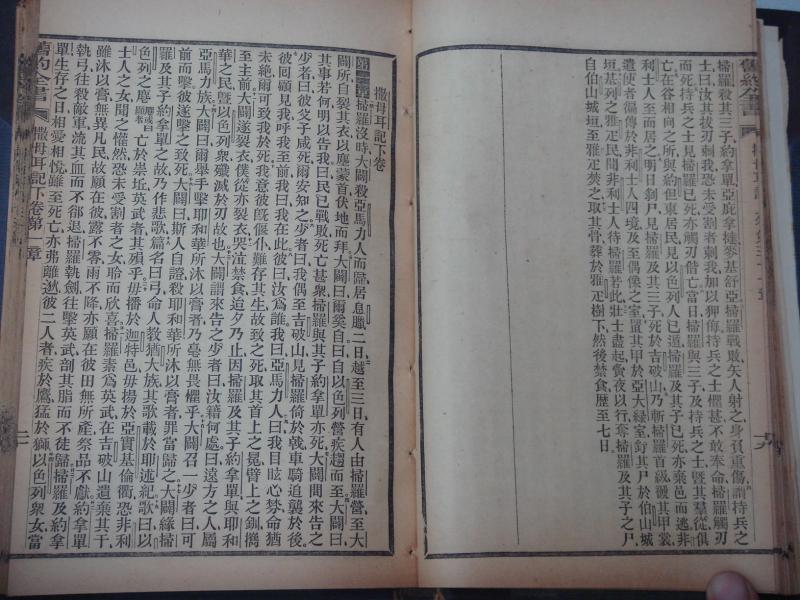 掃羅殺其三子約拿單亞庇拿撻麥基舒亞掃羅戰敗矢人射之身負重傷謂持兵之
士曰汝其拔刃刺我恐未受割者刺我加以狎侮持兵之士懼甚不敢奉命掃羅觸刃
而死持兵之士見掃羅已死亦觸刃偕亡當日掃羅與三子及持兵之士暨其羣從俱
亡在谷相向之所與約但東居民見以色列人已遁掃羅及其子已死亦棄邑而逃非
利士人至而居之明日剝尸見掃羅及其三子死於吉破山乃斬掃羅首級褫其甲裳
遣使者徧傳於非利士人四境及至偶像之室置其甲於亞大綠室釘其尸於伯山城
垣基列之雅疋民聞非利士人待掃羅若此壯士盡起竟夜以行奪掃羅及其子之尸
自伯山城垣至雅疋焚之取其骨葬於雅疋樹下然後禁食歷至七日
撒母耳記下卷
第一章掃羅沒時大闢殺亞馬力人而歸居息臘二日越至三日有人由掃羅營至大
闢所自裂其衣以塵蒙首伏地而拜大闢曰爾奚自曰自以色列營疾趨而至大闢曰
其事若何明以告我曰民已戰敗死亡甚衆掃羅與其子約拿單亦死大闢問來告之
少者曰彼父子咸死爾安知之少者曰我偶至吉破山見掃羅倚於戟車騎追襲於後
彼囘顧見我呼我至前我曰我在此曰汝爲誰我曰亞馬力人曰我目眩心焚命猶
未絶爾可致我於死我意彼旣偃仆難存其生故致之死取其首上之冕臂上之釧攜
至主前大闢遂裂衣僕從亦裂衣哭泣禁食迨夕乃止因掃羅及其子約拿單與耶和
華之民暨以色列衆殲滅於刃故也大闢謂來告之少者曰汝籍何處曰遠方之人屬
亞馬力族大闢曰爾舉手擊耶和華所沐以膏者乃毫無畏懼乎大闢召一少者曰可
前而擊彼遂擊之致死大闢曰斯人自證殺耶和華所沐以膏者罪當歸之大闢緣掃
羅及其子約拿單之故乃作悲歌篇名曰弓命人教猶大族其歌載於耶述紀歌曰以
色列之麀亡於崇坵英武者其殞乎毋播於迦特邑毋揚於亞實基倫衢恐非利
士人之女聞之懽然恐未受割者之女聆而欣喜掃羅素爲英武在吉破山遺棄其干
雖沐以膏無異凡民故願在彼露不零雨不降亦願在彼田無所產祭品不獻約拿單
執弓往殺敵軍流其血而不郤退掃羅執劍往擊英武剖其脂而不徒歸掃羅及約拿
單生存之日相愛相悅雖至死亡亦弗離逖彼二人者疾於鷹猛於獅以色列衆女當
舊約全書
撒母耳記下卷第一章